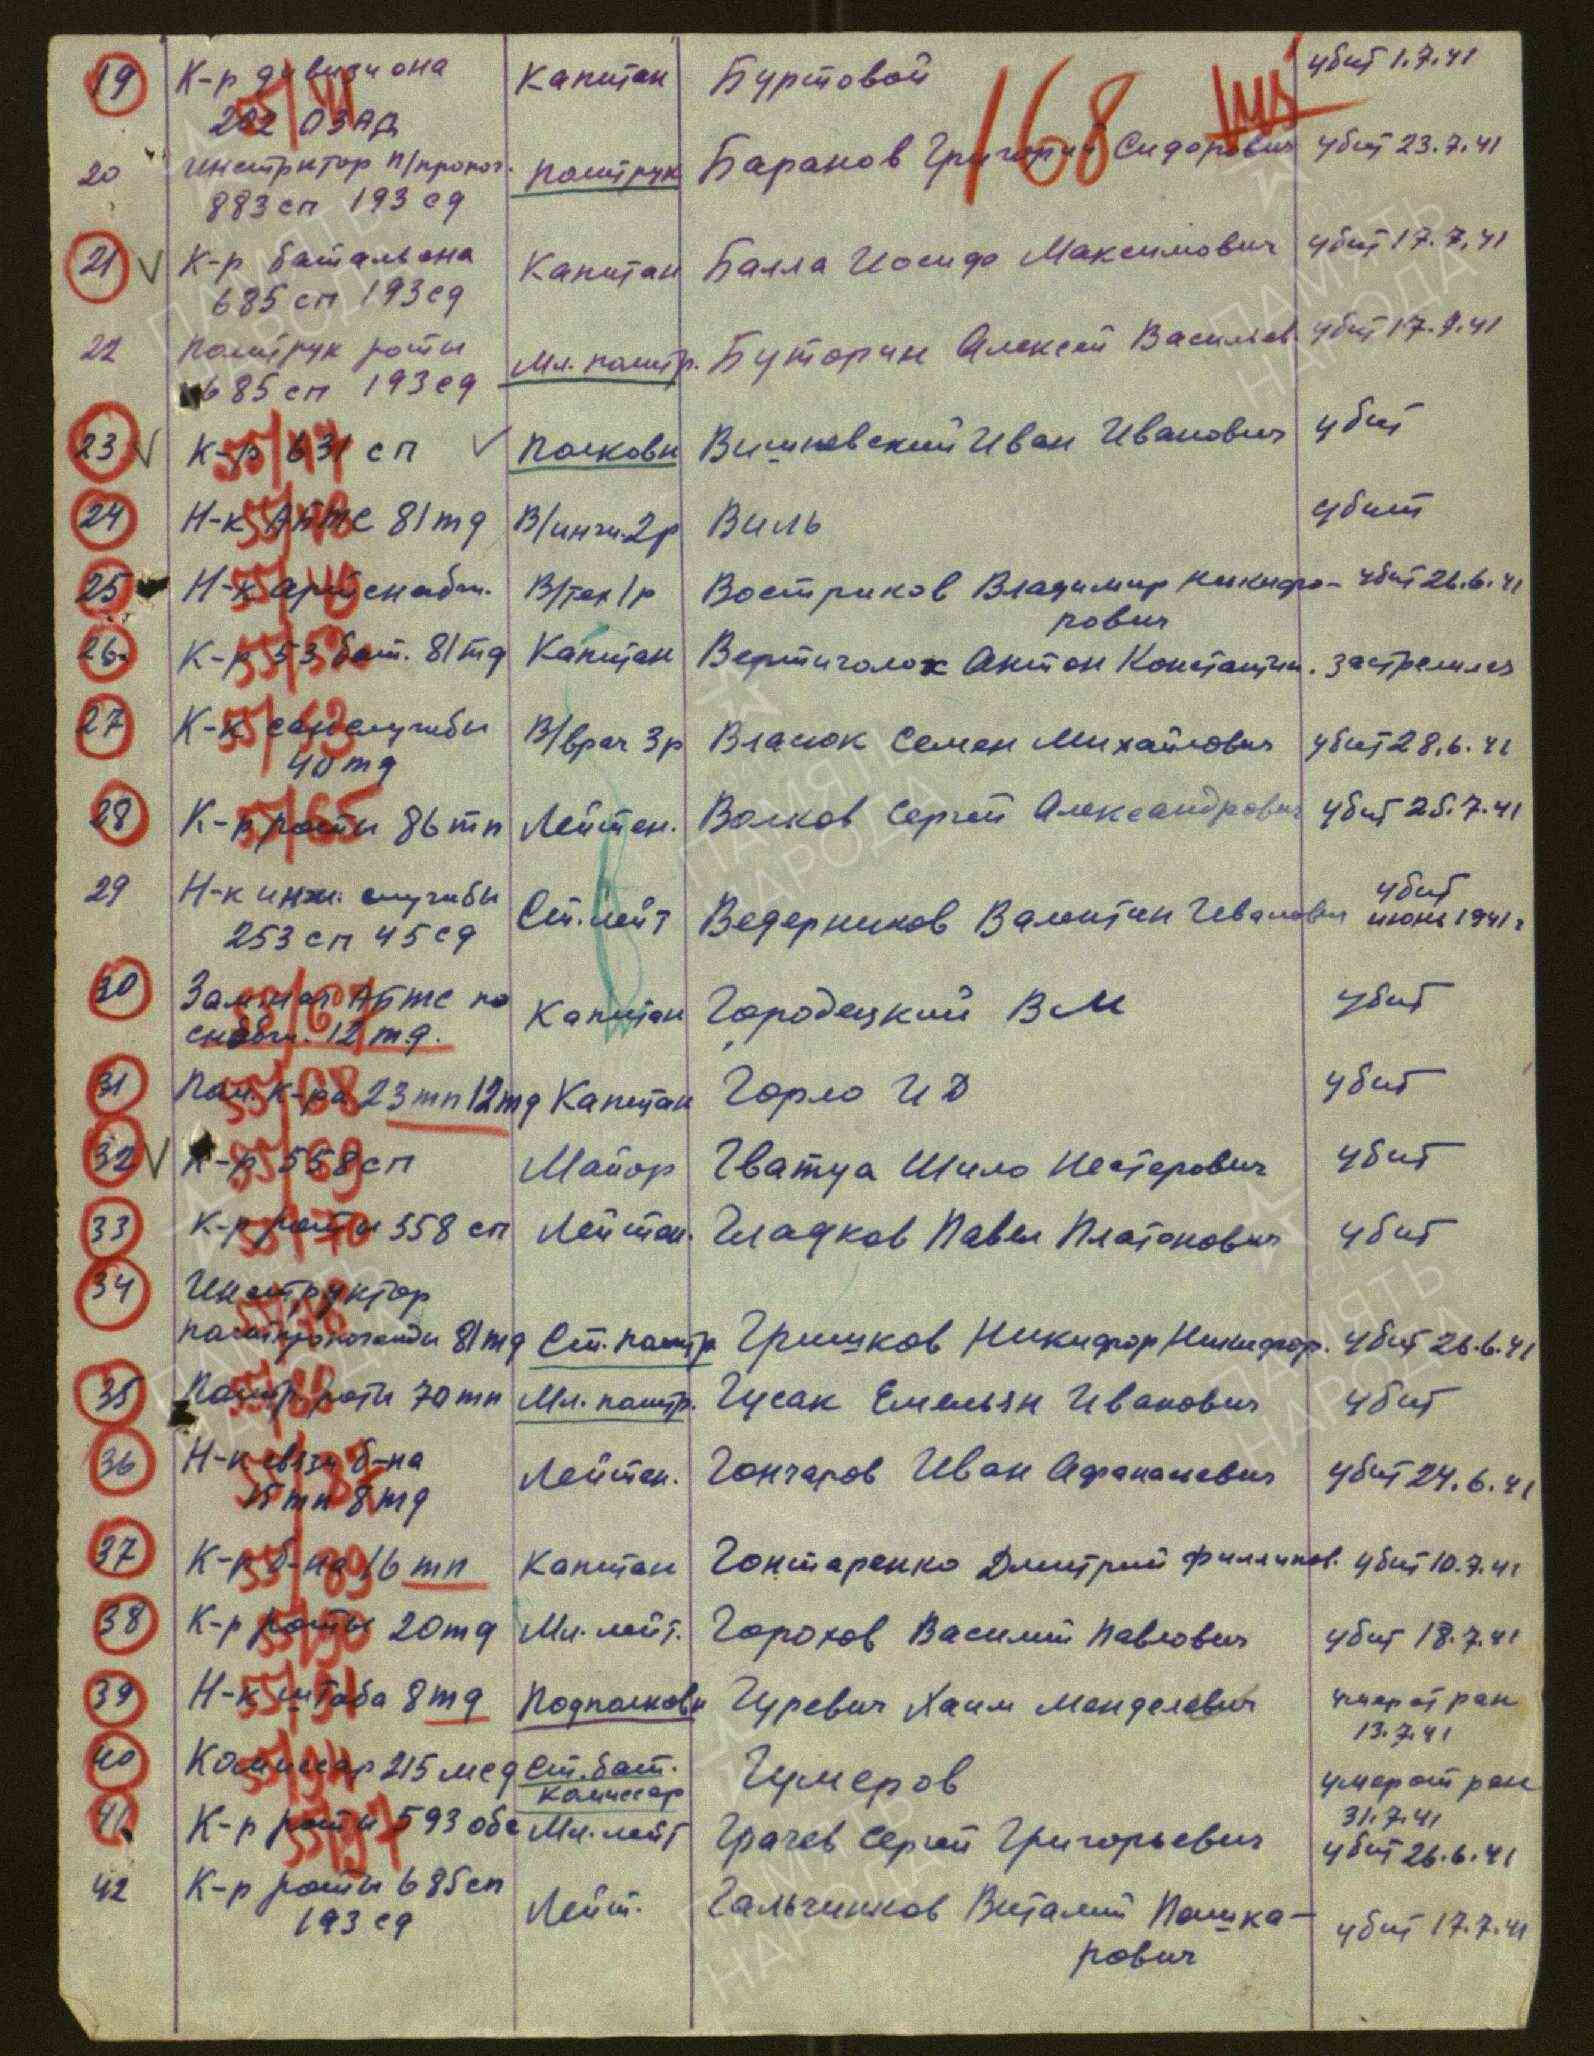 19 К-р дивизиона Капитан Буртовой убит 1.7.41
202 ОЗАД
168
20 Инструктор п/пропог. политрук Баранов Григорий Сидорович убит 23.7.41
883 сп 193 сд
21 К-р батальона Капитан Балла Иосиф Максимович убит 17.7.41
685 сп 193 сд
22 политрук роты Мл. политр. Буторин Алексей Васильев. убит 17.9.41
685 сп 193 сд
23 К-р 631 сп Полковн Вишневский Иван Иванович убит
24 Н-к АБТС 81 тд В/инж. 2р Виль убит
25 Н-к артснабж. В/тех 1р Востриков Владимир Никифо- убит 26.6.41
рович
26 К-р 53 бат. 81 тд Капитан Вертиголох Антон Константин. застрелился
27 К-к санслужбы В/врач 3р Власюк Семен Михайлович убит 28.6.41
40 тд
28 К-р роты 86 тп Лейтен. Волков Сергей Александрович убит 25.7.41
29 Н-к инж. службы Ст. лейт Ведерников Валентин Иванович убит
253 сп 45 сд июнь 1941 г
30 Зам нач АБТС по Капитан Городецкий В М убит
снабж. 12 т.д.
31 Пом. к-ра 23 тп 12 тд Капитан Горло И Д убит
32 К-р 558 сп Майор Гватуа Шило Нестерович убит
33 К-р роты 558 сп Лейтен. Гладков Павел Платонович убит
34 Инструктор
политпропоганды 81 тд Ст. политр Гришков Никифор Никифор. убит 26.6.41
35 Политр. роты 70 тп Мл. политр. Гусак Емельян Иванович убит
36 Н-к связи б-на Лейтен. Гончаров Иван Афанасиевич убит 24.6.41
15 тп 8 тд
37 К-р б-на 16 тп Капитан Гонтаренко Дмитрий Филлипов. убит 10.7.41
38 К-р роты 20 тд Мл. лейт. Горохов Василий Павлович убит 18.7.41
39 Н-к штаба 8 тд Подполковн Гуревич Хаим Менделевич умер от ран
13.7.41
40 Комиссар 215 мсд Ст. бат. Гумеров умер от ран
комиссар 31.7.41
41 К-р роты 593 обс Мл. лейт Грачев Сергей Григорьевич убит 26.6.41
42 К-р роты 685 сп Лейт. Гальчинков Виталий
193 сд рович убит 17.7.41